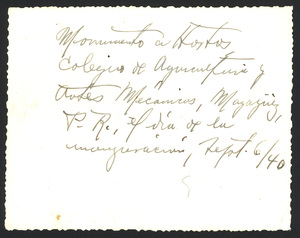 Monumento a Hostos
Colegio de Agricultura y
Artes Mecánicas, Mayagüez,
P.R., el día de la
inauguración, Sept. 6/40